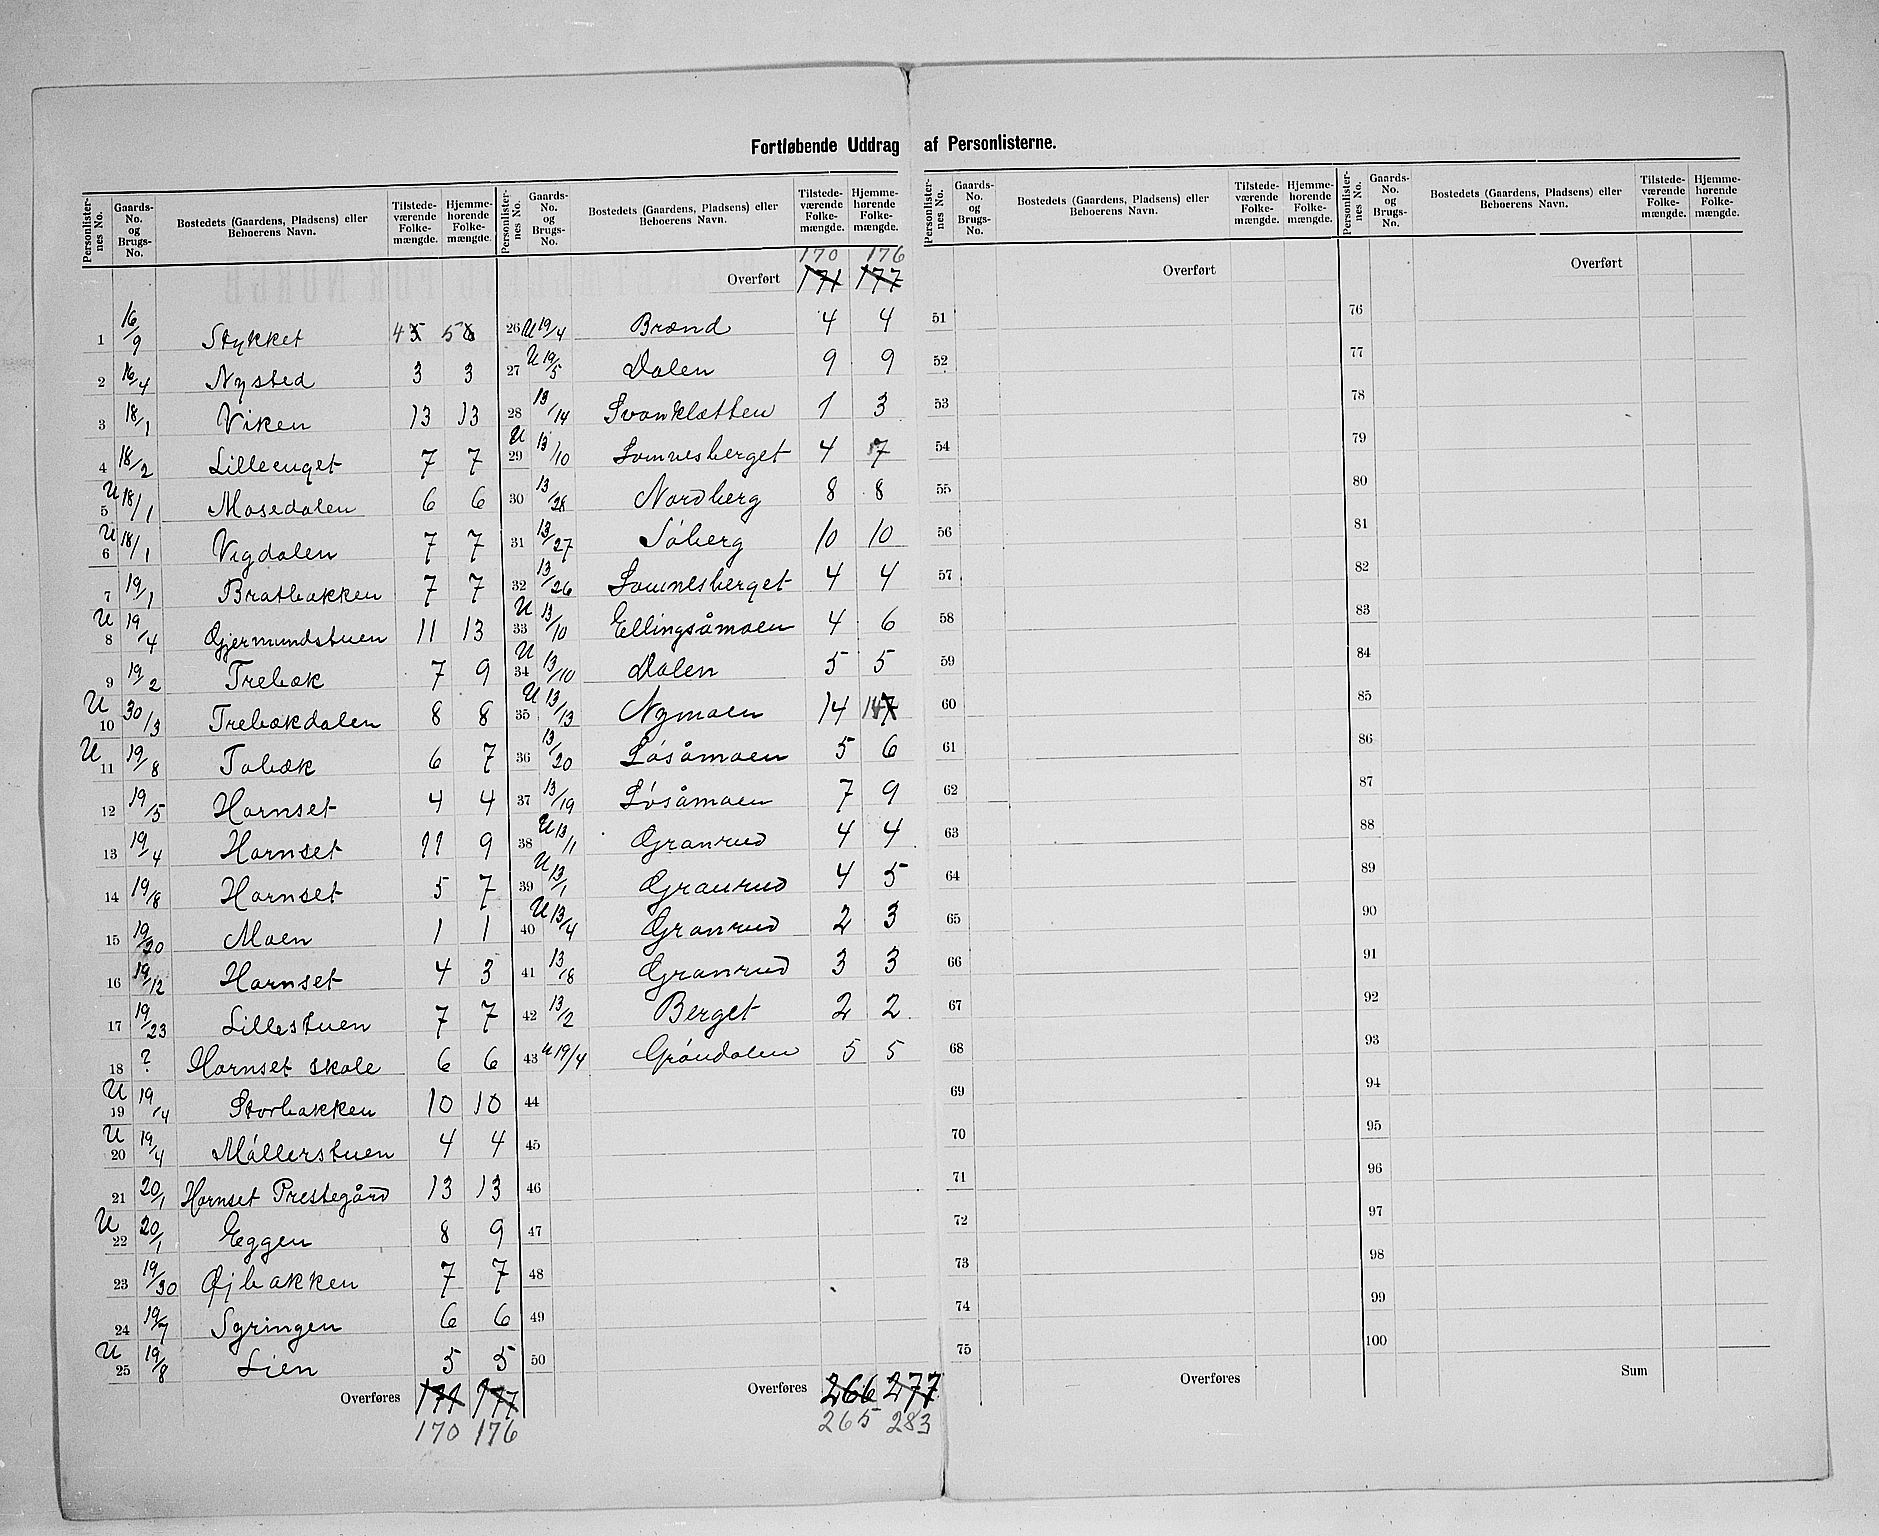 Fortløbende Uddrag af Personlisterne.
Personlister-nes No. | Gaards-No. og Brugs-No. | Bostedets (Gaardens, Pladsens) eller Beboerens Navn. | Tilstede-værende Folke-mængde. | Hjemme-hørende Folke-mængde.
1 16/9 Stykket 4 5 5 6
2 16/4 Nysted 3 3
3 18/1 Viken 13 13
4 18/2 Lilleenget 7 7
U 5 18/1 Mosedalen 6 6
U 6 18/1 Vigdalen 7 7
7 19/1 Bratbakken 7 7
U 8 19/4 Gjermundstuen 11 13
9 19/2 Trebæk 7 9
U 10 30/13 Trebækdalen 8 8
U 11 19/8 Tobæk 6 7
12 19/5 Hornset 4 4
13 19/4 Hornset 11 9
14 19/8 Hornset 5 7
15 19/30 Moen 1 1
16 19/12 Hornset 4 3
17 19/23 Lillestuen 7 7
18 ? Hornset skole 6 6
U 19 19/4 Storbakken 10 10
U 20 19/4 Møllerstuen 4 4
21 20/1 Hornset Prestegård 13 13
U 22 20/1 Eggen 8 9
23 19/30 Øjbakken 7 7
24 19/7 Syringen 6 6
U 25 19/8 Lien 5 5
Overføres 171 177
170 176
Personlister-nes No. | Gaards-No. og Brugs-No. | Bostedets (Gaardens, Pladsens) eller Beboerens Navn. | Tilstede-værende Folke-mængde. | Hjemme-hørende Folke-mængde.
170 176
Overført 171 177
26 U 19/4 Brænd 4 4
27 U 19/5 Dalen 9 9
28 13/14 Svanklætten 1 3
U 29 13/10 Lomnesberget 4 7
30 13/28 Nordberg 8 8
31 13/27 Søberg 10 10
32 13/26 Lomnesberget 4 4
U 33 13/10 Ellingsåmoen 4 6
U 34 13/10 Dalen 5 5
U 35 13/13 Nymoen 14 14
36 13/20 Løsåmoen 5 6
37 13/19 Løsåmoen 7 9
38 U 13/11 Granrud 4 4
39 U 13/1 Granrud 4 5
40 U 13/4 Granrud 2 3
41 13/18 Granrud 3 3
42 13/2 Berget 2 2
43 U 19/4 Grøndalen 5 5
44
45
46
47
48
49
50
Overføres 266 277
265 283
Personlister-nes No. | Gaards-No. og Brugs-No. | Bostedets (Gaardens, Pladsens) eller Beboerens Navn. | Tilstede-værende Folke-mængde. | Hjemme-hørende Folke-mængde.
Overført
51
52
53
54
55
56
57
58
59
60
61
62
63
64
65
66
67
68
69
70
71
72
73
74
75
Overføres
Personlister-nes No. | Gaards-No. og Brugs-No. | Bostedets (Gaardens, Pladsens) eller Beboerens Navn. | Tilstede-værende Folke-mængde. | Hjemme-hørende Folke-mængde.
Overført
76
77
78
79
80
81
82
83
84
85
86
87
88
89
90
91
92
93
94
95
96
97
98
99
100
Sum